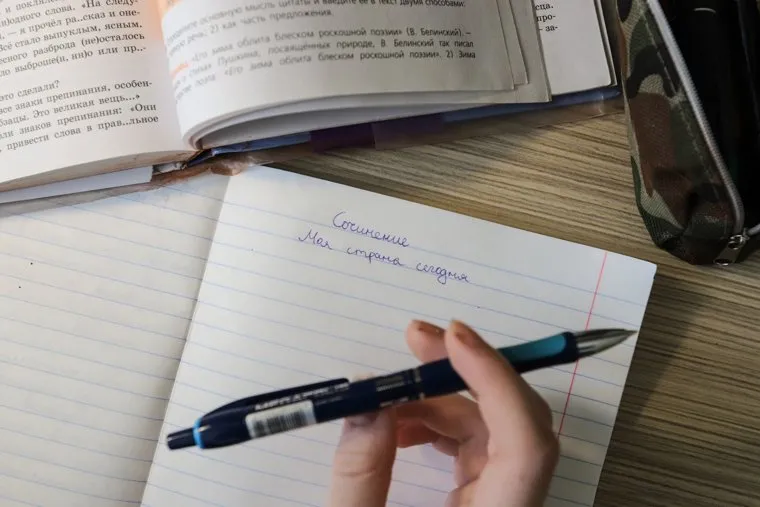 слова. «На следу-
— я прочёл ра..сказ и оне-
стало выпуклым, ясным.
разброда (не)осталось
выброше(н, нн)о или пр..
это сделали?
все знаки препинания, особен-
Это великая вещь...»
знаков препинания: «Они
привести слова в прав..льное
основную мысль цитаты и введите её в текст двумя способами:
речь; 2) как часть предложения.
«Его зима облита блеском роскошной поэзии» (В. Белинский). –
Пушкина, посвящённых природе, В. Белинский так писал
поэта: «Его зима облита блеском роскошной поэзии». 2) Зима
Сочинение
Моя страна сегодня